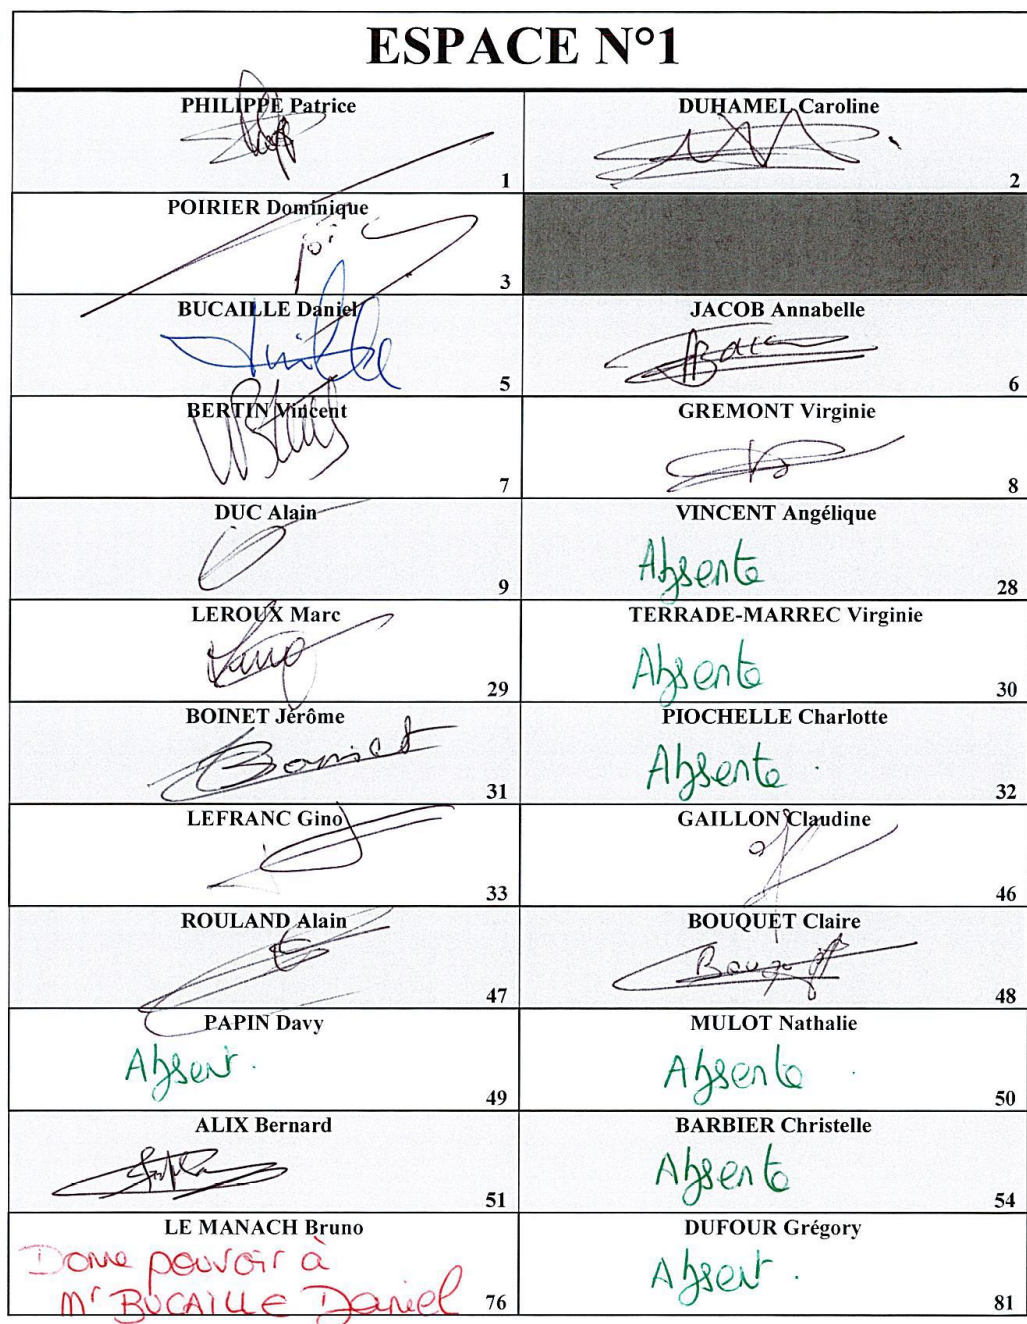 ESPACE N°1
PHILIPPE Patrice
1
DUHAMEL Caroline
2
POIRIER Dominique
3
BUCAILLE Daniel
5
JACOB Annabelle
6
BERTIN Vincent
7
GREMONT Virginie
8
DUC Alain
9
VINCENT Angélique
Absente
28
LEROUX Marc
29
TERRADE-MARREC Virginie
Absente
30
BOINET Jérôme
31
PIOCHELLE Charlotte
Absente.
32
LEFRANC Gino
33
GAILLON Claudine
46
ROULAND Alain
47
BOUQUET Claire
Bouquet
48
PAPIN Davy
Absent.
49
MULOT Nathalie
Absente.
50
ALIX Bernard
51
BARBIER Christelle
Absente
54
LE MANACH Bruno
Donne pouvoir à
Mr BUCAILLE Daniel
76
DUFOUR Grégory
Absent.
81